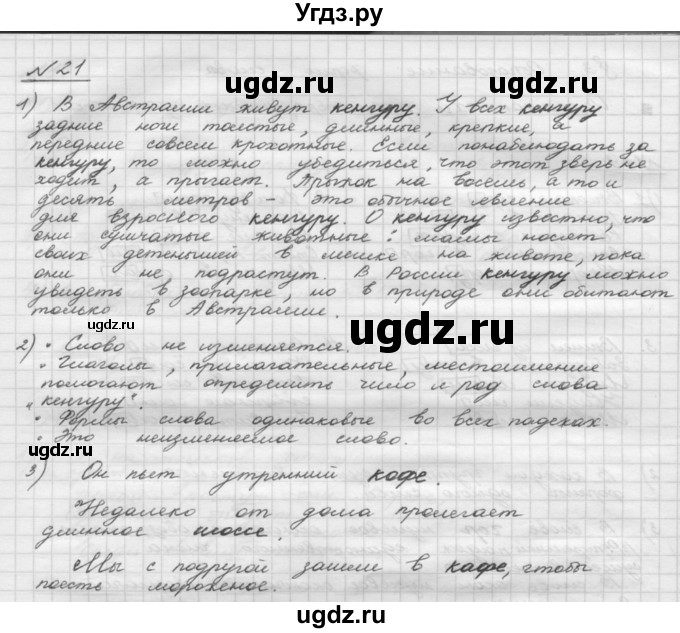 Угдз.ру
№21
ugdz.ru
ugdz.ru
1) В Австралии живут кенгуру. У всех кенгуру
задние ноги толстые, длинные, крепкие, а
передние совсем крохотные. Если понаблюдать за
кенгуру, то можно убедиться, что этот зверь не
ходит, а прыгает. Прыжок на восемь, а то и
десять метров - это обычное явление
для взрослого кенгуру. О кенгуру известно, что
они сумчатые животные: мамы носят
своих детенышей в мешке на животе, пока
они не подрастут. В России кенгуру можно
увидеть в зоопарке, но в природе они обитают
только в Австралии.
ugdz.ru
ugdz.ru
2) • Слово не изменяется.
• Глаголы, прилагательные, местоимения
помогают определить число и род слова
„кенгуру".
• Формы слова одинаковые во всех падежах.
• Это неизменяемое слово.
ugdz.ru
3) Он пьет утренний кофе.
Недалеко от дома пролегает
длинное шоссе.
Мы с подругой зашли в кафе, чтобы
поесть мороженое.
ugdz.ru